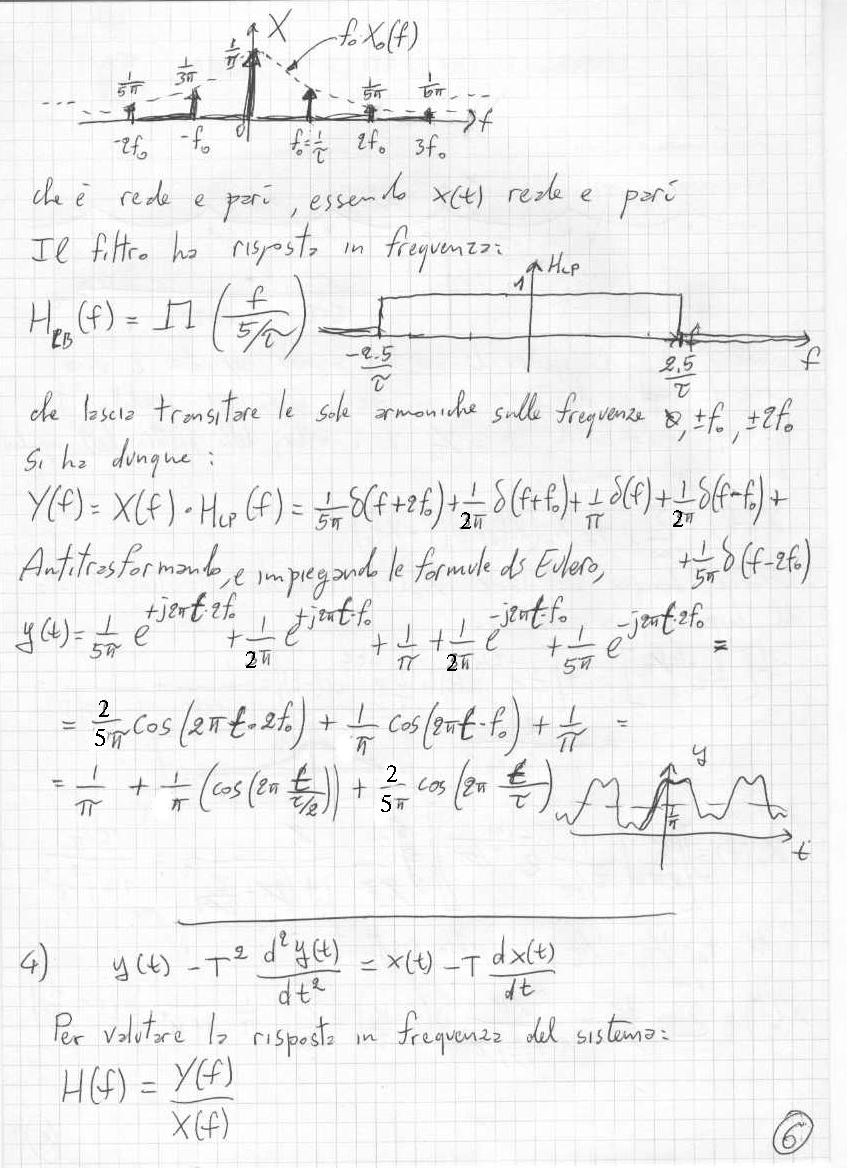 X
f₀ X₀(f)
1/5π 1/3π 1/π 1/5π 1/6π
-2f₀ -f₀ 0 f₀=1/τ 2f₀ 3f₀ f
che è reale e pari, essendo x(t) reale e pari
Il filtro ha risposta in frequenza:
H_LP
1
H_PB(f) = Π (f / (5/τ))
-2.5/τ 2.5/τ f
che lascia transitare le sole armoniche sulle frequenze 0, ±f₀, ±2f₀
Si ha dunque:
Y(f) = X(f) · H_LP(f) = 1/5π δ(f+2f₀) + 1/2π δ(f+f₀) + 1/π δ(f) + 1/2π δ(f-f₀) +
+ 1/5π δ(f-2f₀)
Antitrasformando, e impiegando le formule di Eulero,
y(t) = 1/5π e^(+j2πt·2f₀) + 1/2π e^(+j2πt·f₀) + 1/π + 1/2π e^(-j2πt·f₀) + 1/5π e^(-j2πt·2f₀) =
= 2/5π cos(2πt·2f₀) + 1/π cos(2πt·f₀) + 1/π =
= 1/π + 1/π (cos(2π t/(τ/2))) + 2/5π cos(2π t/τ)
y
1/π
t
4) y(t) - T² d²y(t)/dt² = x(t) - T dx(t)/dt
Per valutare la risposta in frequenza del sistema:
H(f) = Y(f)/X(f)
6